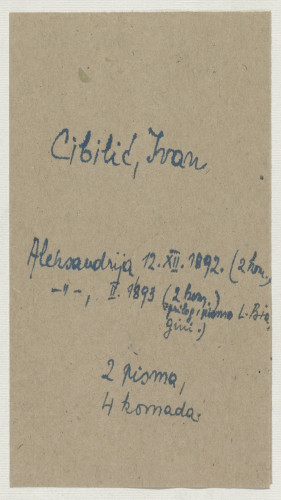 Cibilić, Ivan
Aleksandrija 12. XII. 1892. (2 kom.)
-"-, II. 1893 (2 kom.)
prilog, pisma L. Bia
gini.)
2 pisma,
4 komada.